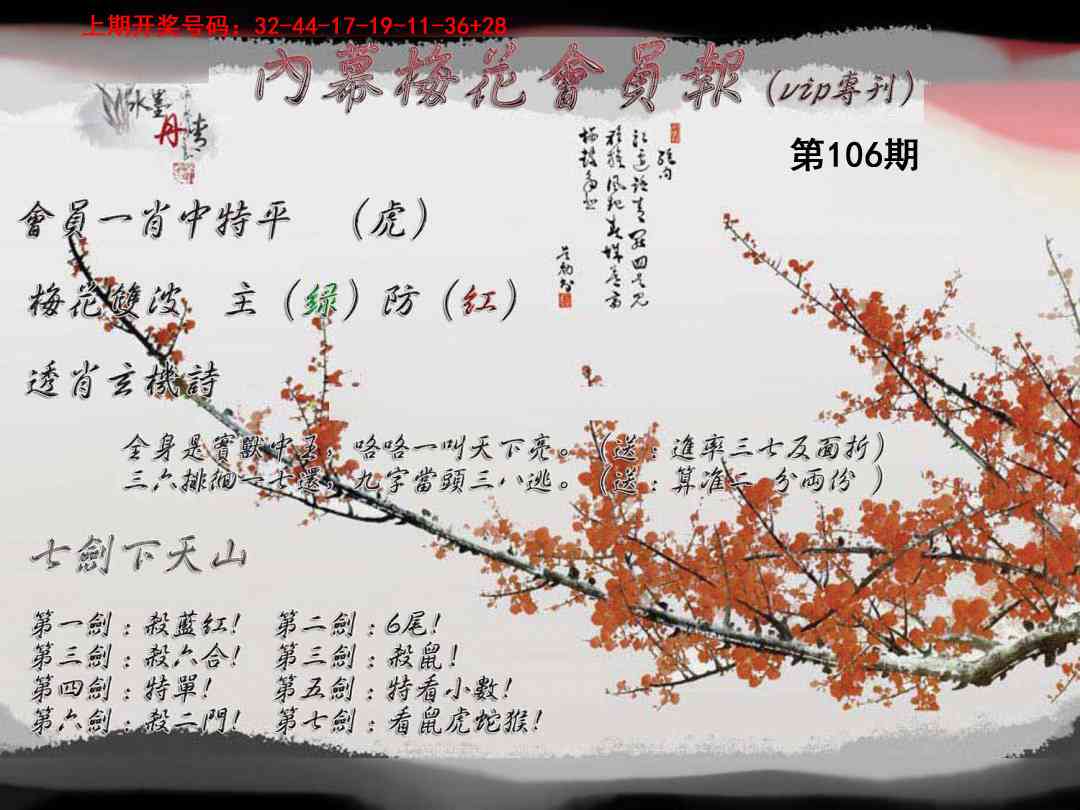 上期开奖号码：32-44-17-19-11-36+28
內幕梅花會員報（vip專刊）
水墨
丹青
第106期
絕句
會員一肖中特平 （虎）
梅花雙波 主（綠）防（紅）
透肖玄機詩
全身是寶獸中王，咯咯一叫天下亮。（送：進率三七反面折）
三六排徊一七還，九字當頭三八逃。（送：算准二 分兩份 ）
七劍下天山
第一劍：殺藍紅！ 第二劍：6尾！
第三劍：殺六合！ 第三劍：殺鼠！
第四劍：特單！ 第五劍：特看小數！
第六劍：殺二門！ 第七劍：看鼠虎蛇猴！